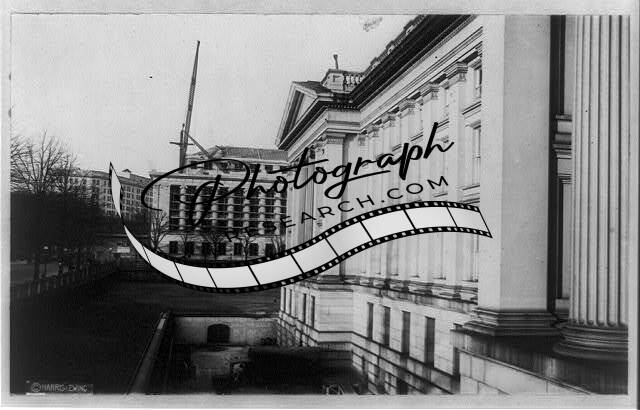 Photograph
RESEARCH.COM
©HARRIS & EWING